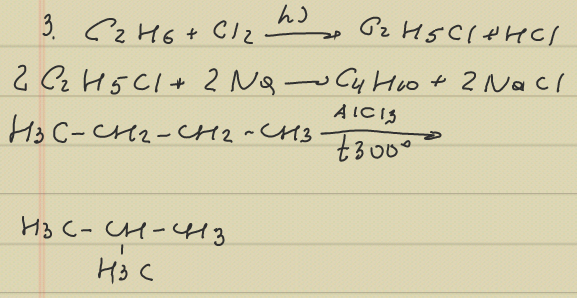 3. C2H6 + Cl2 hν → C2H5Cl + HCl
2C2H5Cl + 2Na → C4H10 + 2NaCl
H3C-CH2-CH2-CH3 AlCl3 → t300°
H3C-CH-CH3
H3C